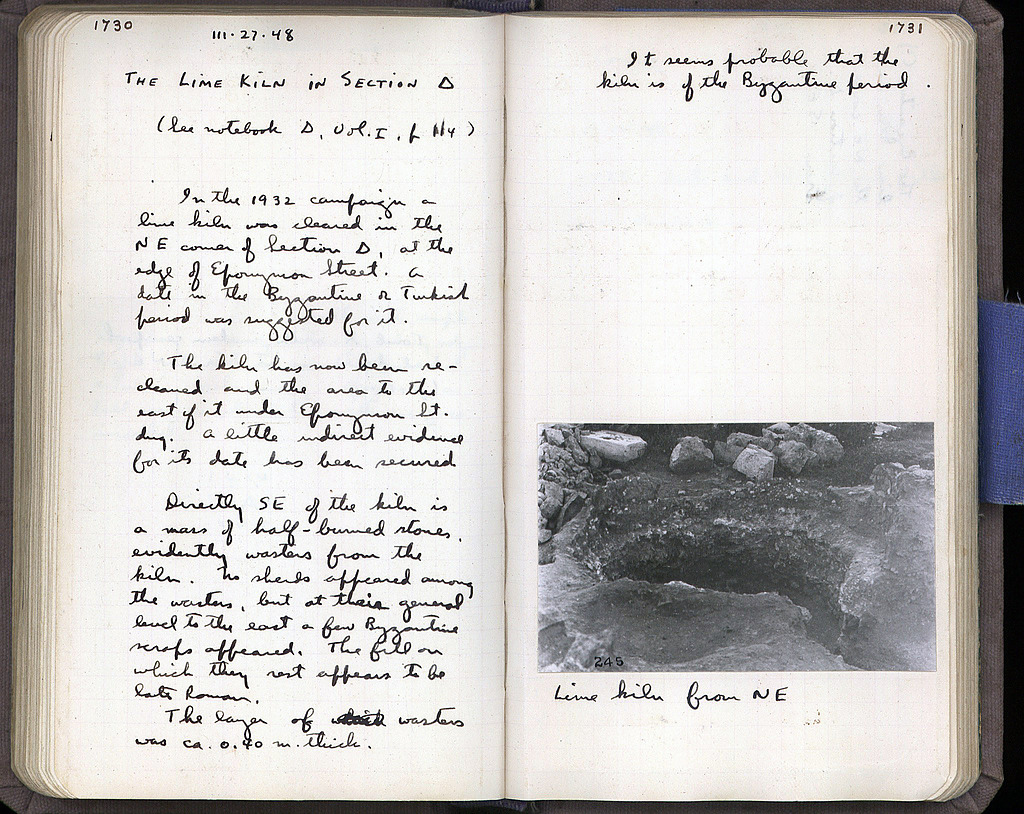 1730
III·27·48
THE LIME KILN IN SECTION Δ
(See notebook Δ, Vol. I, p 114)
In the 1932 campaign a
lime kiln was cleared in the
NE corner of Section Δ, at the
edge of Eponymon Street. A
date in the Byzantine or Turkish
period was suggested for it.
The kiln has now been re-
cleaned and the area to the
east of it under Eponymon St.
dug. A little indirect evidence
for its date has been secured
Directly SE of the kiln is
a mass of half-burned stones,
evidently wasters from the
kiln. No sherds appeared among
the wasters, but at their general
level to the east a few Byzantine
scraps appeared. The fill on
which they rest appears to be
late Roman.
The layer of wasters
was ca. 0.40 m. thick.
1731
It seems probable that the
kiln is of the Byzantine period.
245
Lime kiln from NE